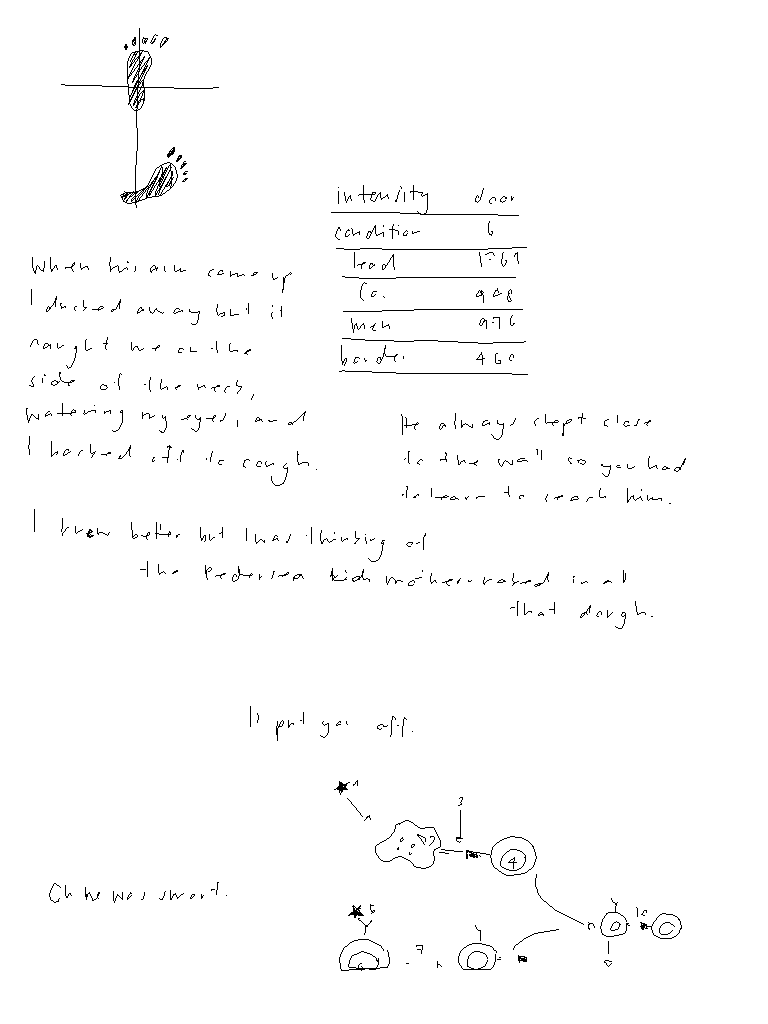 intensity door
condition 6
lead
Co. 948
men 976
border 460
When his arm came up
I ducked away but it
caught me on the
side of the neck,
watering my eyes, and
I backed off to cough.
He always slept close
to the wall so you had
to learn to reach him.
I knew better but I was thinking of
the Pedersen kid mother-naked in all
that dough.
It put you off.
Oh he was smart.
1
3
4
6
7
10